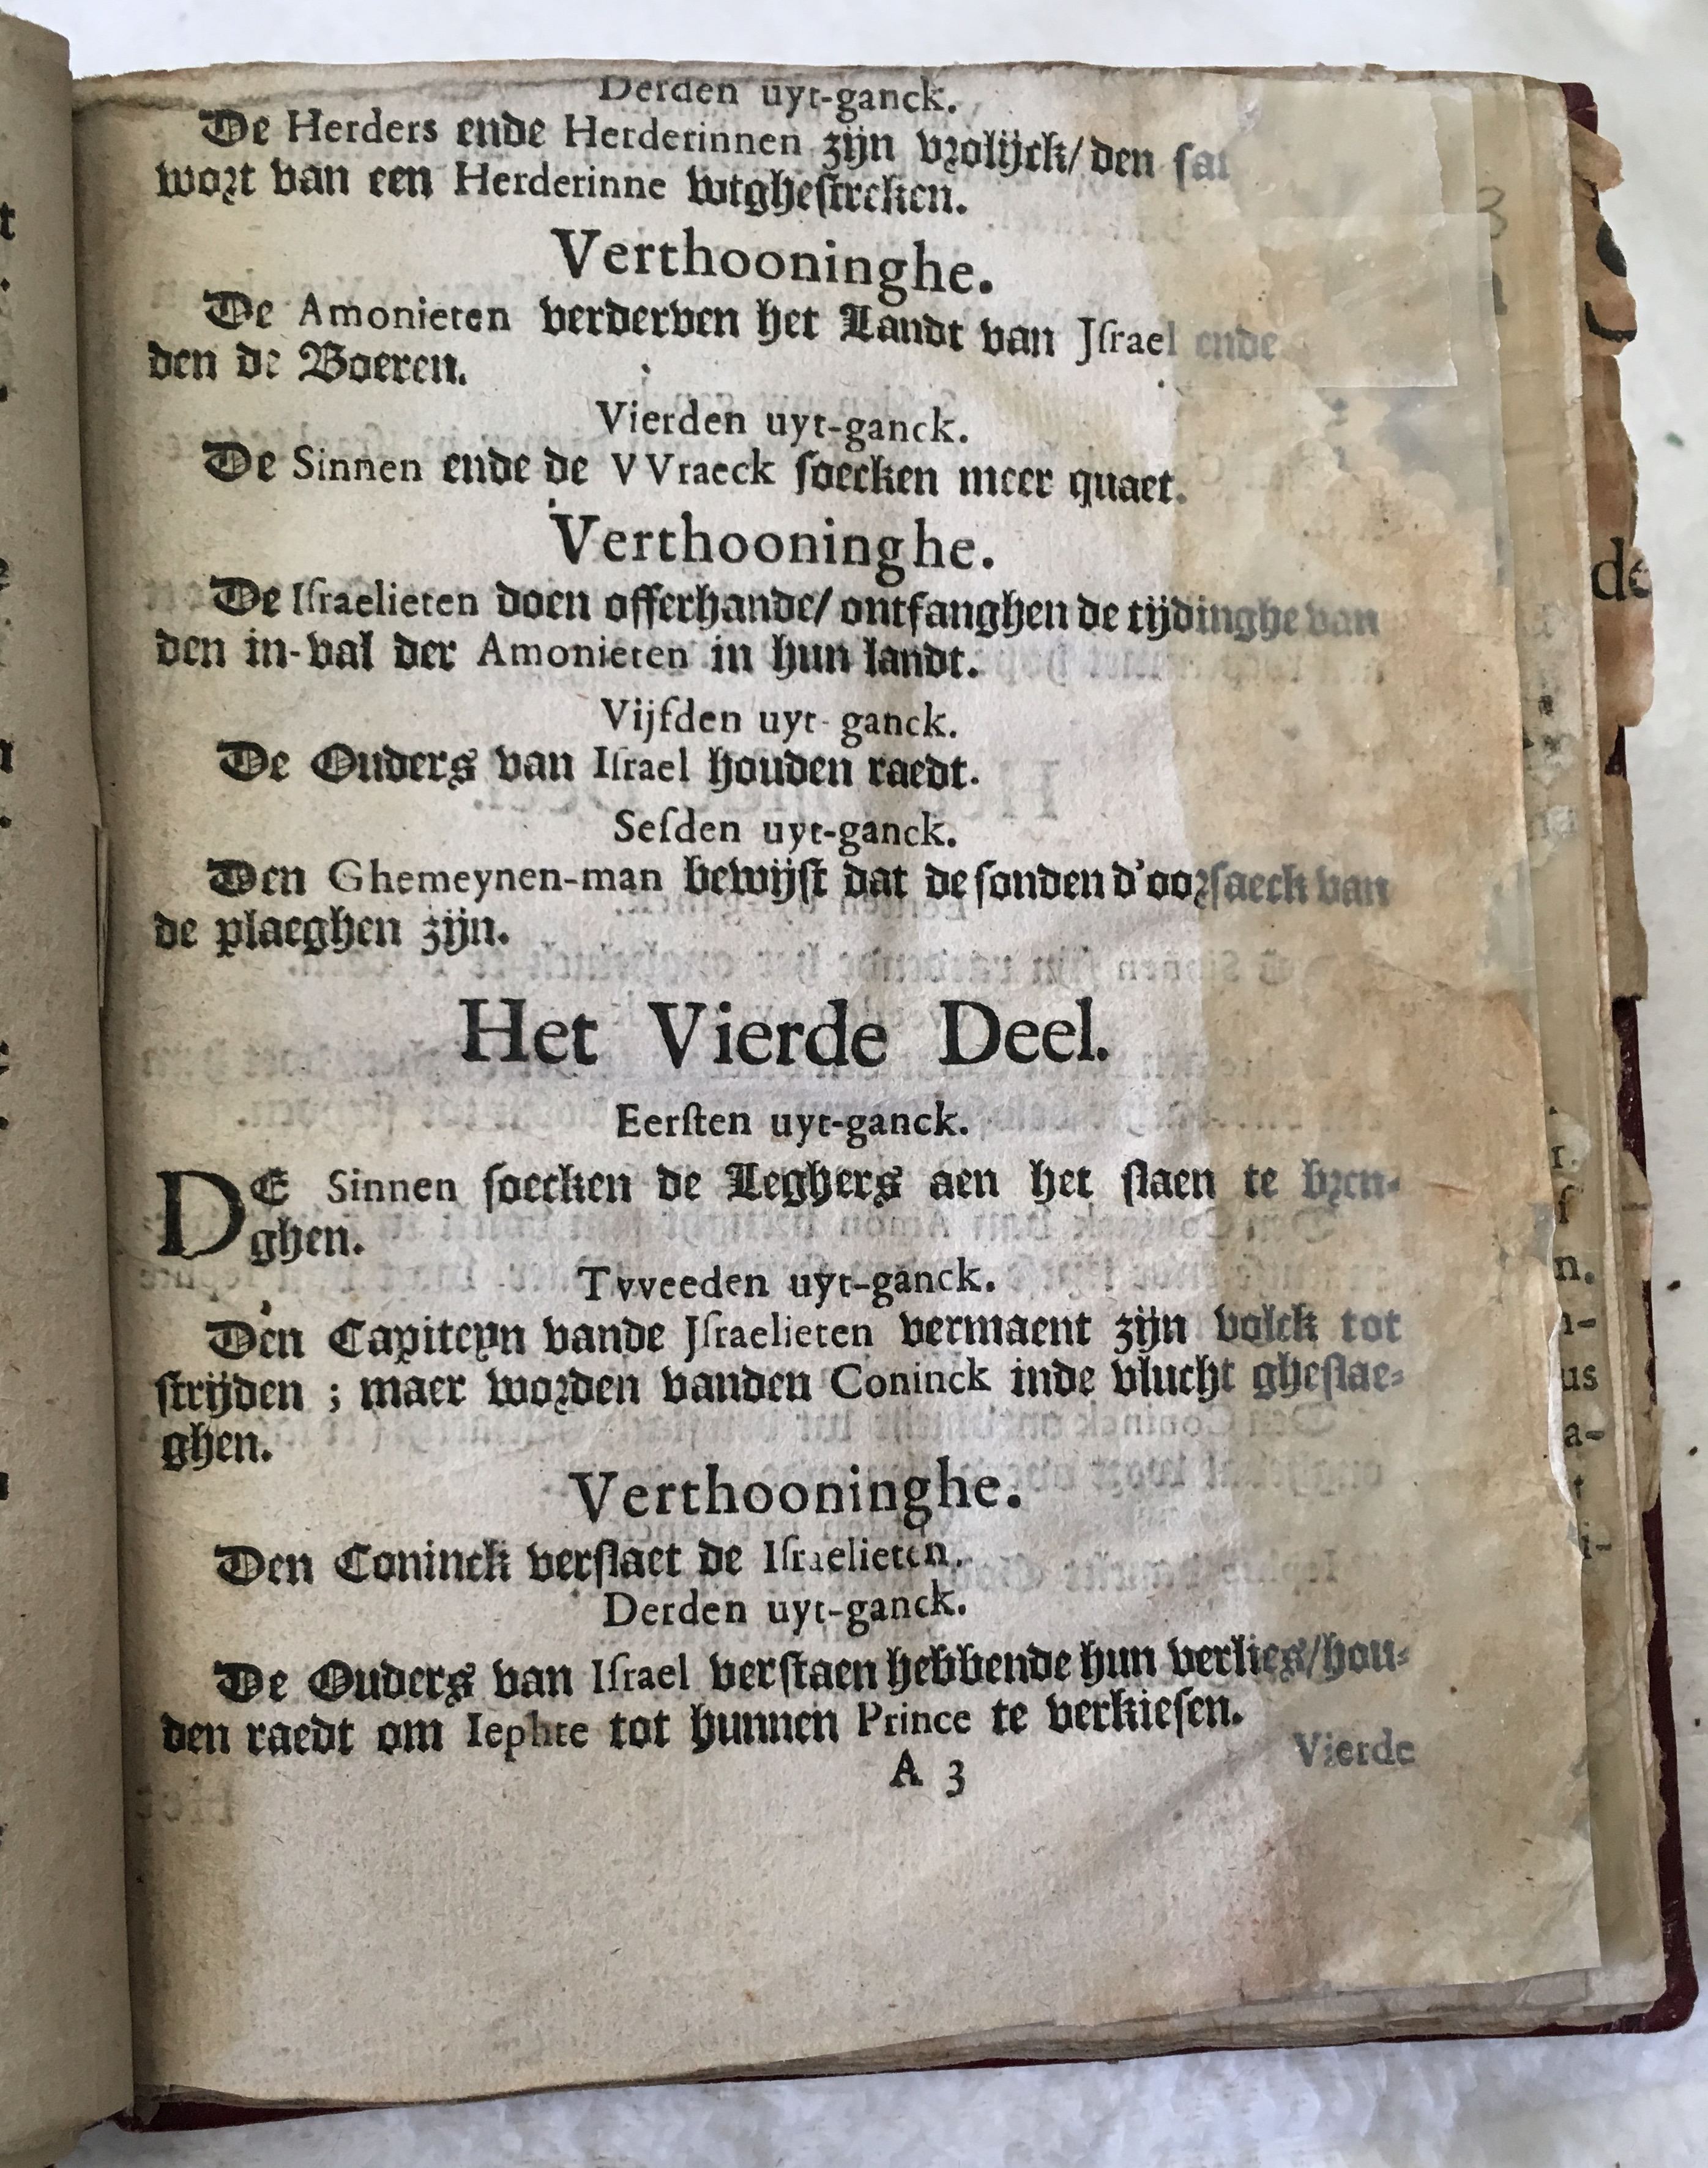 Derden uyt-ganck.
De Herders ende Herderinnen zijn vrolijck/ den
wort van een Herderinne wtghestreken.
Verthooninghe.
De Amonieten verderven het Landt van Jſrael ende
den de Boeren.
Vierden uyt-ganck.
De Sinnen ende de VVraeck ſoecken meer quaet.
Verthooninghe.
De Iſraelieten doen offerhande/ ontfanghen de tijdinghe van
den in-val der Amonieten in hun landt.
Vijfden uyt-ganck.
De Ouders van Iſrael houden raedt.
Seſden uyt-ganck.
Den Ghemeynen-man bewijſt dat de ſonden d'oorſaeck van
de plaeghen zijn.
Het Vierde Deel.
Eerſten uyt-ganck.
DE Sinnen ſoecken de Leghers aen het ſlaen te bren-
ghen.
Tvveeden uyt-ganck.
Den Capiteyn vande Jſraelieten vermaent zijn volck tot
ſtrijden ; maer worden vanden Coninck inde vlucht gheſlae-
ghen.
Verthooninghe.
Den Coninck verſlaet de Iſraelieten.
Derden uyt-ganck.
De Ouders van Iſrael verſtaen hebbende hun verlies/ hou-
den raedt om Iephte tot hunnen Prince te verkieſen.
A 3
Vierde